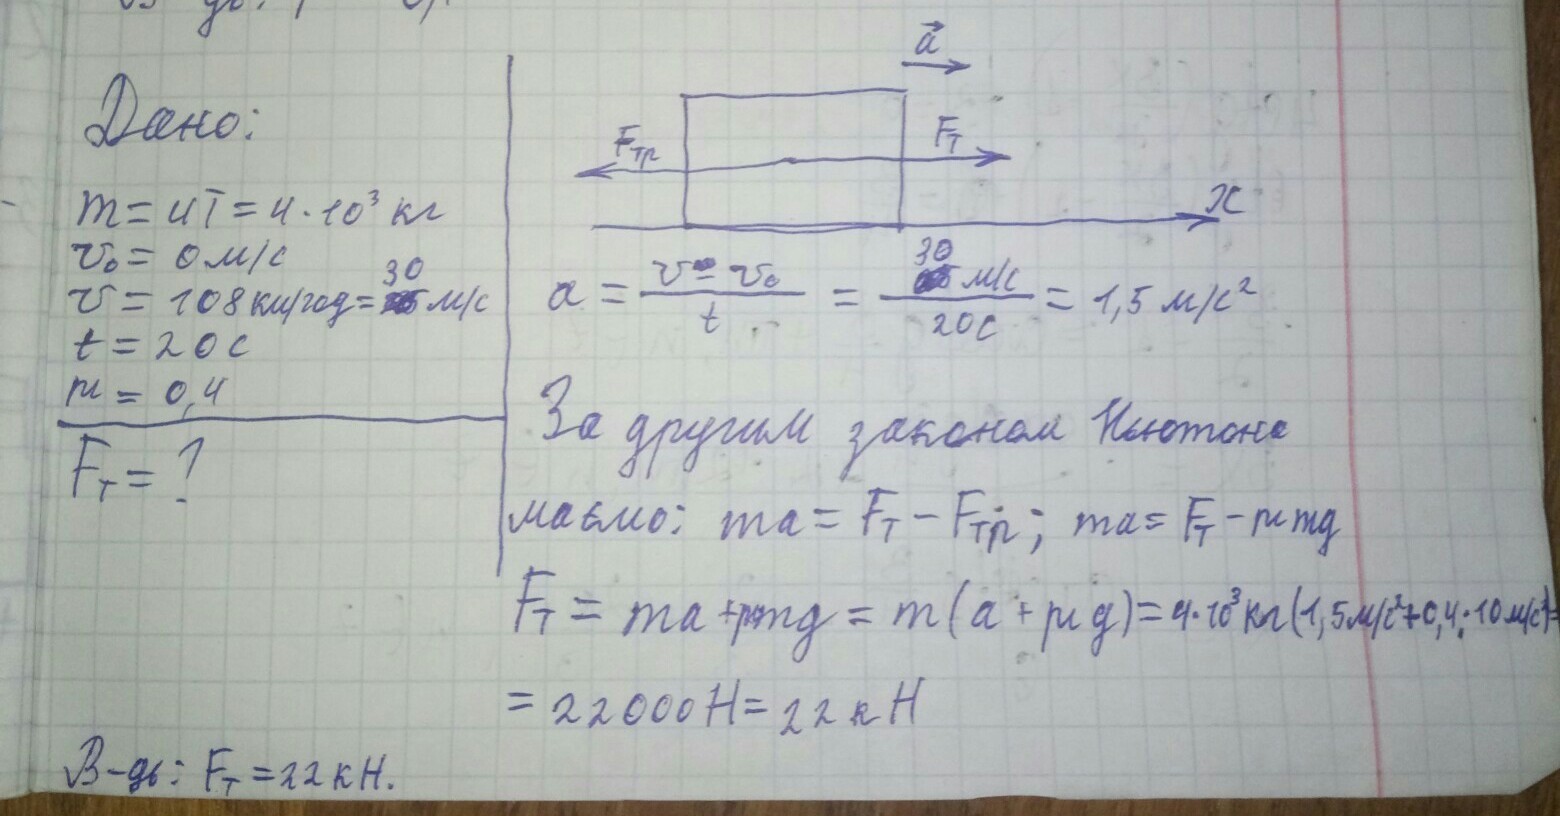 Дано:
m = 4т = 4·10³ кг
v₀ = 0 м/с
v = 108 км/год = 30 м/с
t = 20 с
μ = 0,4
Fт = ?
a⃗
Fтр Fт
x
a = (v - v₀)/t = 30 м/с / 20с = 1,5 м/с²
За другим законом Ньютона
маємо: ma = Fт - Fтр; ma = Fт - μmg
Fт = ma + μmg = m(a + μg) = 4·10³ кг (1,5 м/с² + 0,4·10 м/с²) =
= 22000 Н = 22 кН
В-дь: Fт = 22 кН.